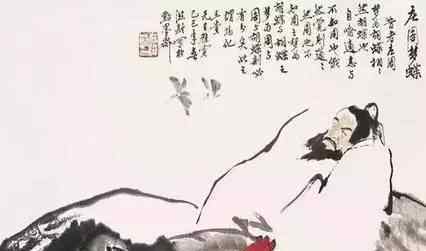 庄周梦蝶
昔者庄周
梦为胡蝶栩
栩然胡蝶也
自喻适志与
不知周也俄
然觉则蘧蘧
然周也不
知周之梦为
胡蝶与胡蝶之
梦为周与
周与胡蝶则必
有分矣此之
谓物化